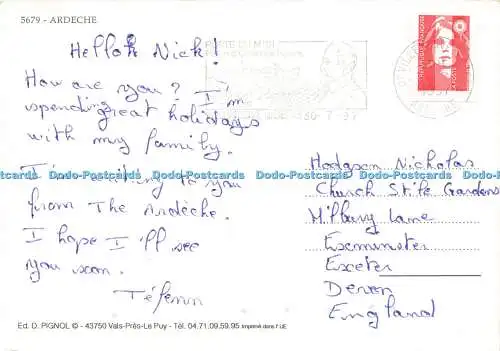 5679 - ARDECHE
Hellok Nick!
How are you? I'm
spending great holidays
with my family.
I'm writing to you
from The Ardèche.
I hope I'll see
you soon.
Téfenn
30-7-97
REPUBLIQUE FRANÇAISE
LA POSTE
Hodgson Nicholas
Church Stile Gardens
Milbury Lane
Exeminster
Exeter
Devon
England
Dodo-Postcards Dodo-Postcards Dodo-Postcards Dodo-Postcards Dodo-Postcards
Ed. D. PIGNOL © - 43750 Vals-Près-Le Puy - Tél. 04.71.09.59.95 Imprimé dans l'UE